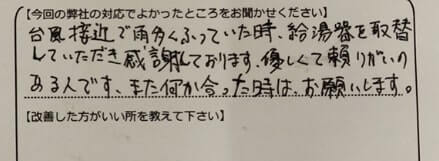 【今回の弊社の対応でよかったところをお聞かせください】
台風接近で雨多くふっていた時、給湯器を取替
していただき感謝しております。優しくて頼りがいの
ある人です、また何か合った時は、お願いします。
【改善した方がいい所を教えて下さい】